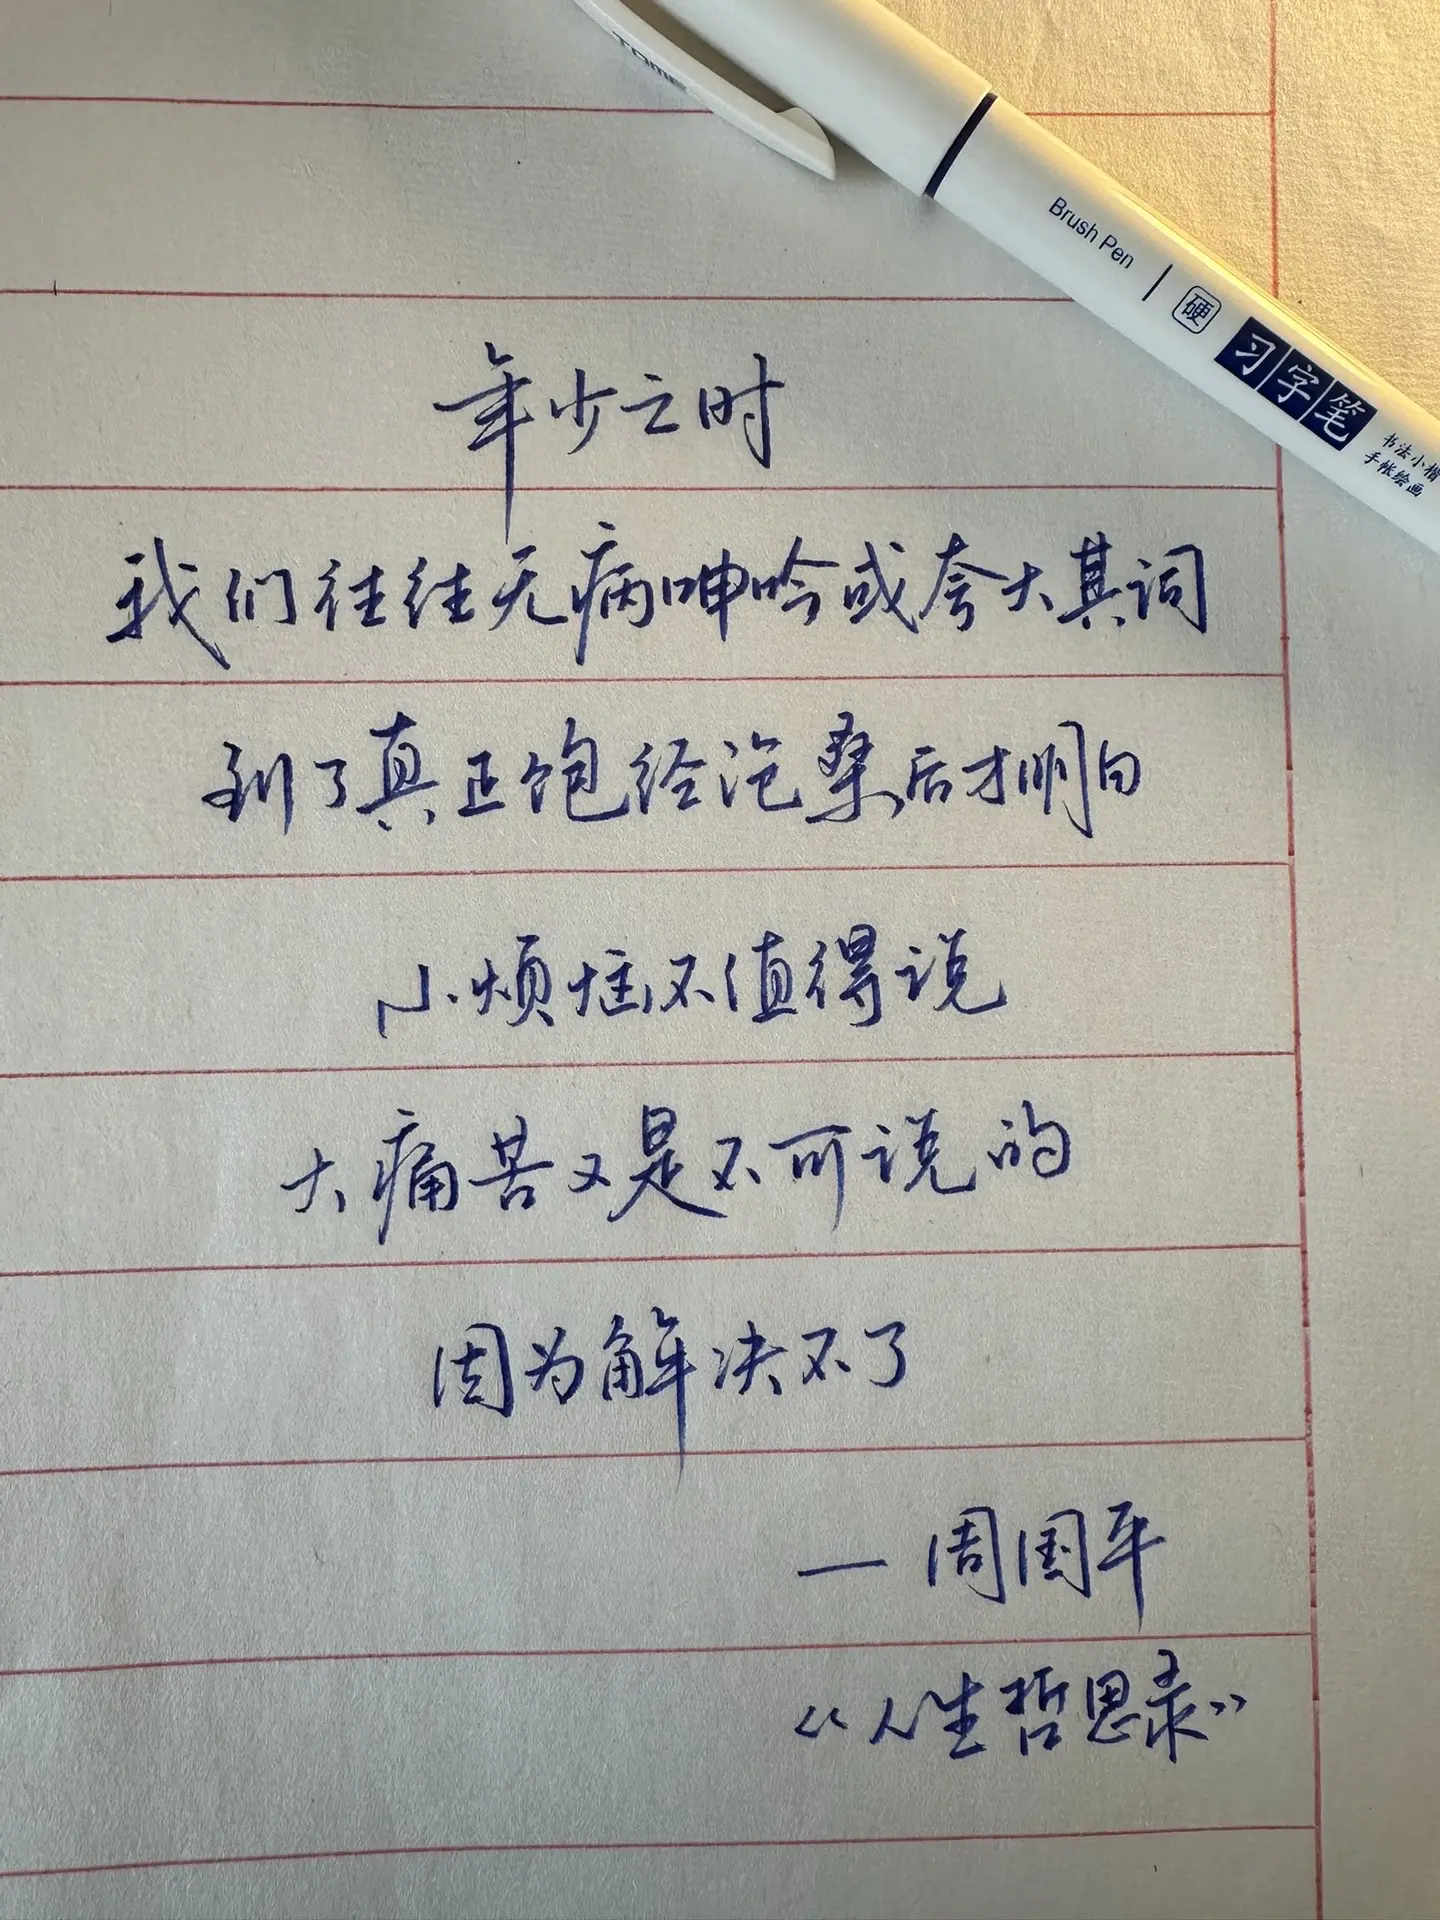 Brush Pen
硬
习字笔
书法小楷
手帐绘画
年少之时
我们往往无病呻吟或夸大其词
到了真正饱经沧桑后才明白
小烦恼不值得说
大痛苦又是不可说的
因为解决不了
— 周国平
《人生哲思录》